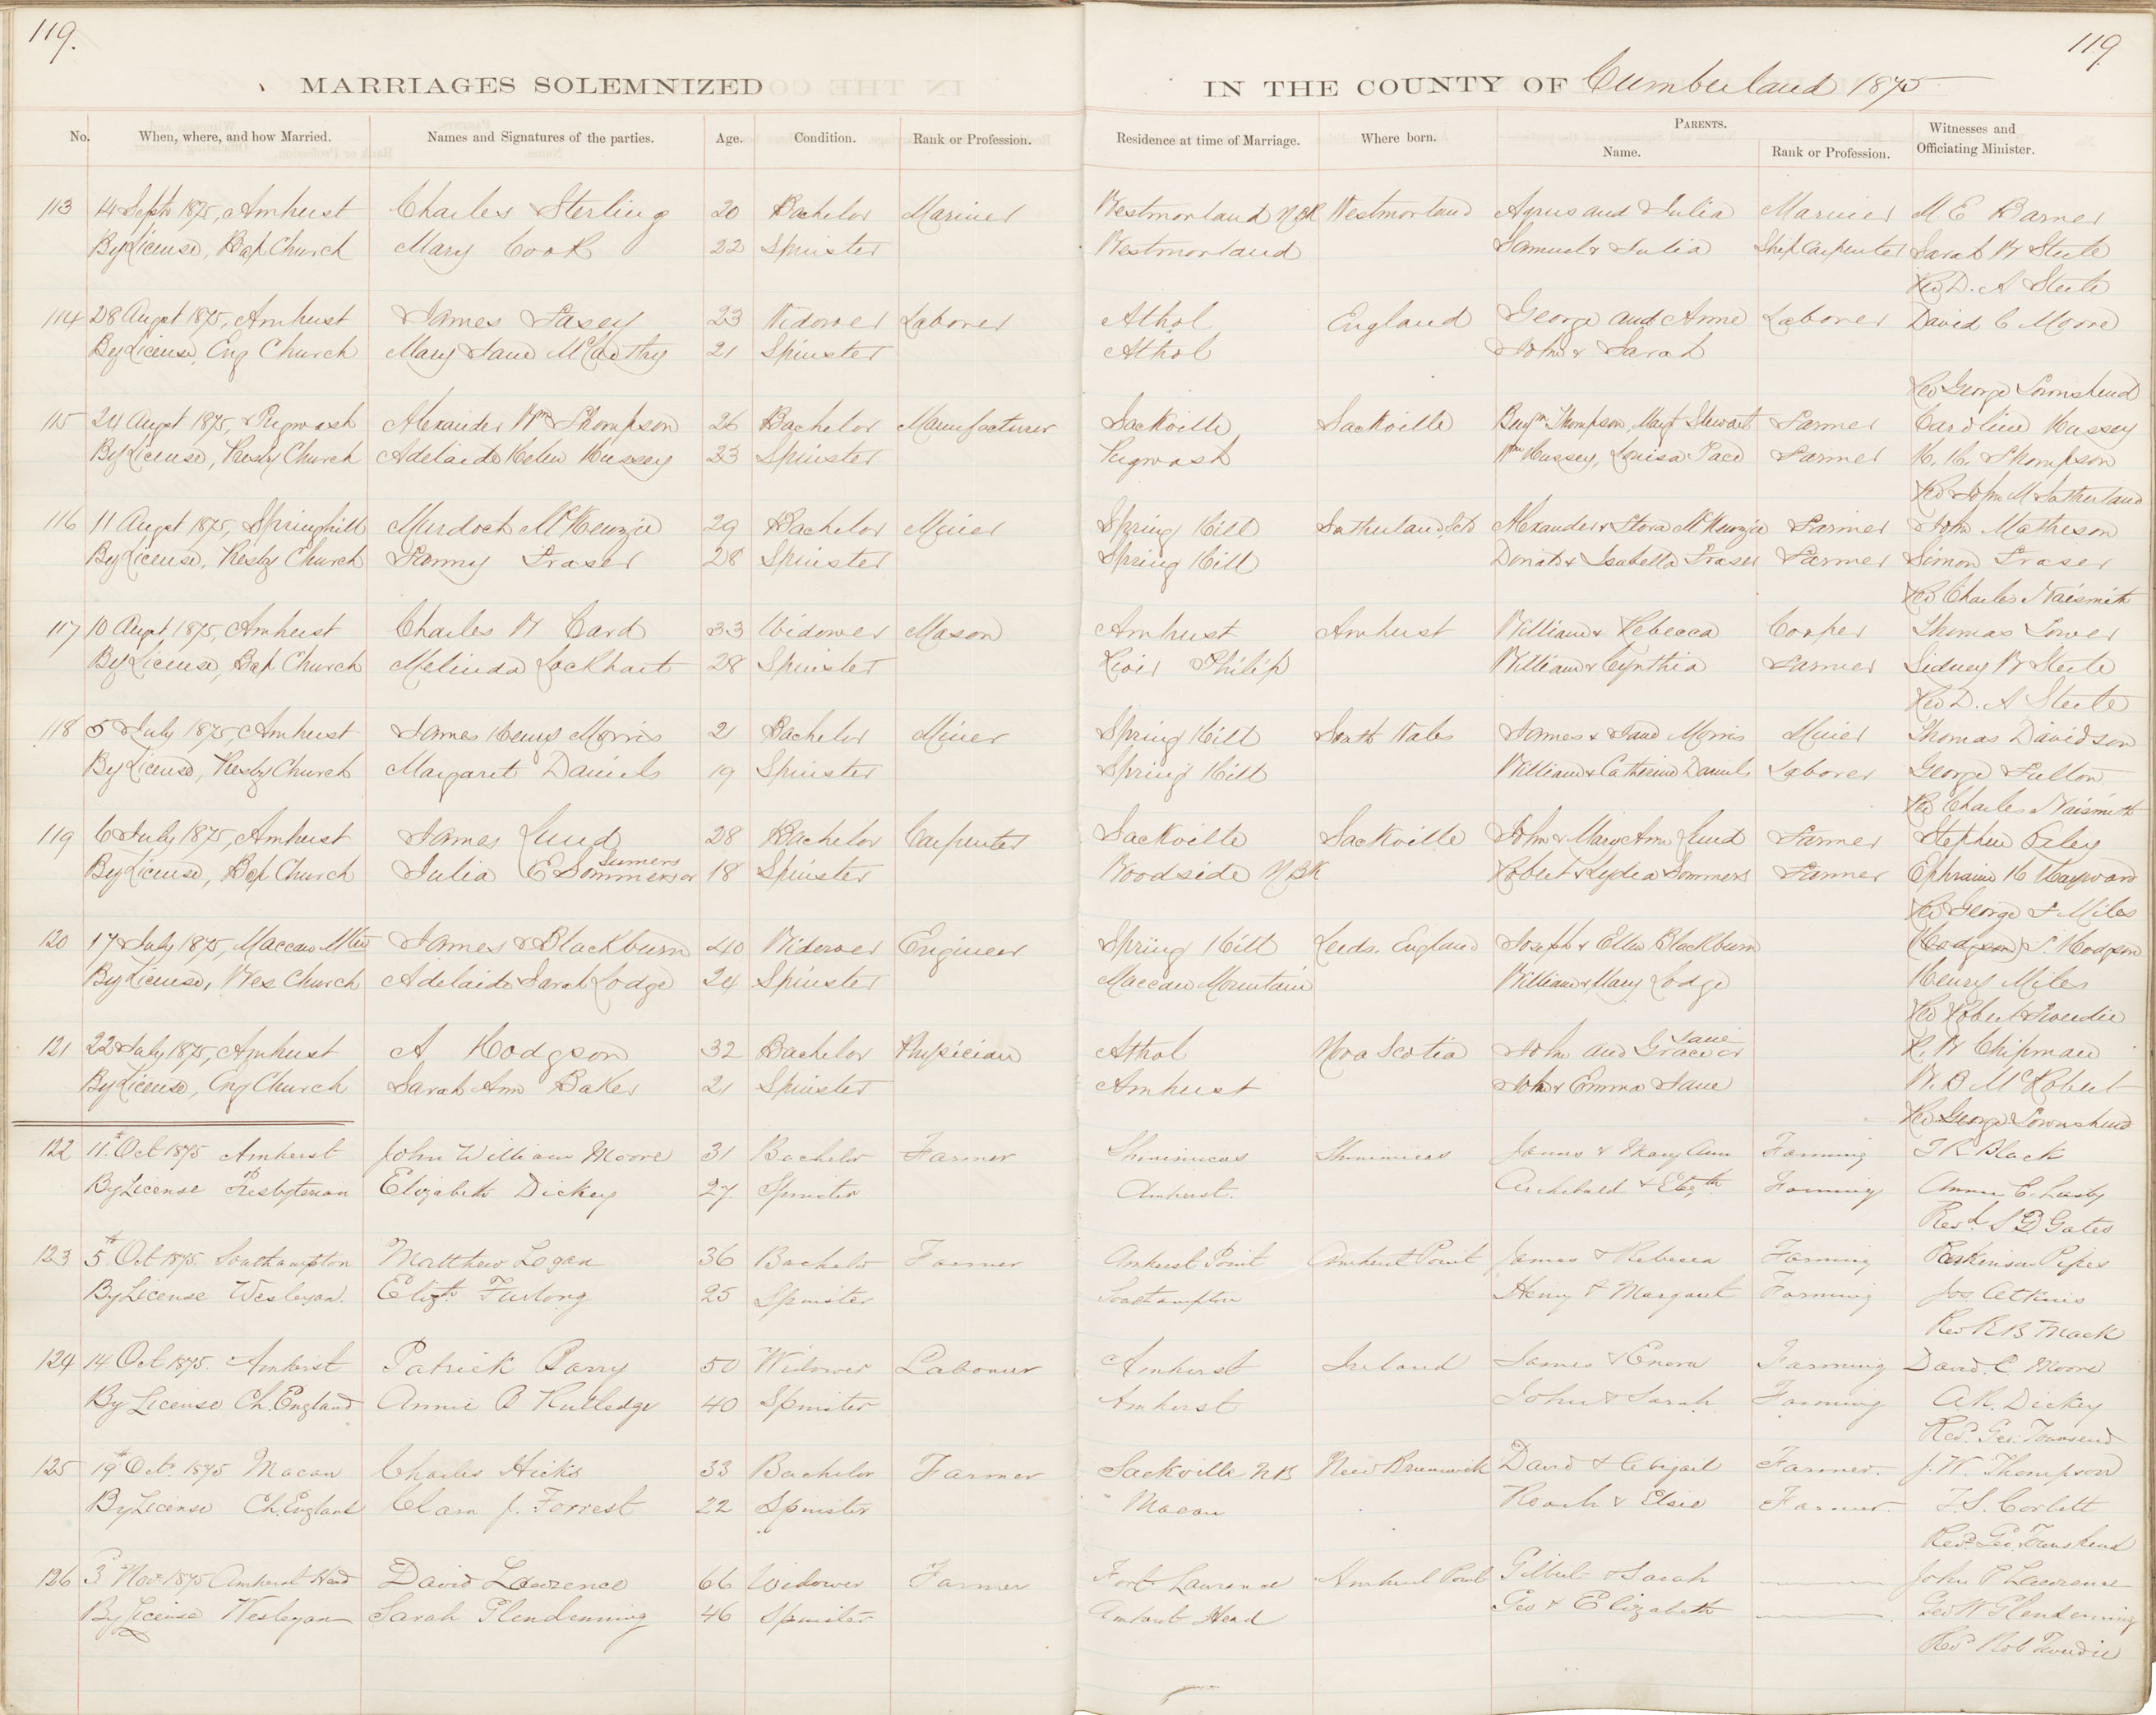 119.
119
MARRIAGES SOLEMNIZED IN THE COUNTY OF Cumberland 1875
No. When, where, and how Married. Names and Signatures of the parties. Age. Condition. Rank or Profession. Residence at time of Marriage. Where born. PARENTS. Name. Rank or Profession. Witnesses and Officiating Minister.
113 14 Septr 1875, Amherst Charles Sterling 20 Bachelor Mariner Westmorland NBk Westmorland and Julia Mariner M E Barner
By License, Bap Church Mary Cook 22 Spinster Westmorland Samuel & Julia Ship Carpenter Sarah W Steele
Rev D. A Steele
114 28 Augst 1875, Amherst James 23 Widower Laborer Athol England George and Anne Laborer David C Moore
By License, Eng Church Mary Jane McCarthy 21 Spinster Athol John & Sarah
Rev George Townshend
115 24 Augst 1875, Pugwash Alexander Wm Thompson 26 Bachelor Manufacturer Sackville Sackville Benjn Thompson, Margt Stewart Farmer Caroline Hussey
By License, Presby Church Adelaide Helen Hussey 23 Spinster Pugwash Wm Hussey, Louisa Farmer H. H. Thompson
Rev John M Sutherland
116 11 Augst 1875, Springhill Murdoch McKenzie 29 Bachelor Miner Spring Hill Sutherland, Sctd Alexander & McKenzie Farmer John Matheson
By License, Presby Church Fanny Fraser 28 Spinster Spring Hill Donald & Isabella Fraser Farmer Simon Fraser
Rev Charles Naismith
117 10 Augst 1875, Amherst Charles W Card 33 Widower Mason Amherst Amherst William & Rebecca Cooper Thomas Tower
By License, Bap Church Melinda Lockhart 28 Spinster River Philip William & Cynthia Farmer Sidney W Steele
Rev D. A Steele
118 5 July 1875, Amherst James Henry Morris 21 Bachelor Miner Spring Hill South Wales James & Jane Morris Miner Thomas Davidson
By License, Presby Church Margaret Daniels 19 Spinster Spring Hill William & Catherine Daniels Laborer George Fulton
Rev Charles Naismith
119 6 July 1875, Amherst James Lund 28 Bachelor Carpenter Sackville Sackville John & Mary Ann Lund Farmer Stephen
By License, Bap Church Julia E Sommers or Sumers 18 Spinster Woodside NBk Robert & Lydia Sommers Farmer Ephraim H Hayward
Rev George F Miles
120 17 July 1875, Maccan Mtn James Blackburn 40 Widower Engineer Spring Hill Leeds, England Joseph & Ellen Blackburn Hodgson
By License, Wes Church Adelaide Sarah Lodge 24 Spinster Maccan Mountain William & Mary Lodge Henry Miles
Rev Robert Tweedie
121 22 July 1875, Amherst A Hodgson 32 Bachelor Physician Athol Nova Scotia John and Grace or Jane R. W Chipman
By License, Eng Church Sarah Ann Baker 21 Spinster Amherst John & Emma Jane W. B McRobert
Rev George Townshend
122 11th Oct 1875 Amherst John William Moore 31 Bachelor Farmer Shinimicas Shinimicas James & Mary Ann Farming T R Black
By License Presbyterian Elizabeth Dickey 27 Spinster Amherst. Archibald & Elizth Farming Annie E. Lusby
Revd. S B Gates
123 5th Oct 1875. Southampton Matthew Logan 36 Bachelor Farmer Amherst Point Amherst Point James & Rebecca Farming Parkinson Pipes
By License Wesleyan. Elizth Furlong 25 Spinster Southampton Henry & Margaret Farming Jos Atkins
Rev R B Mack
124 14 Oct 1875. Amherst Patrick Barry 50 Widower Labourer Amherst Ireland James & Farming David C. Moore
By License Ch. England Annie B Rutledge 40 Spinster Amherst John & Sarah Farming A R. Dickey
Revd. Geo. Townsend
125 19th Oct. 1875 Macan Charles Hicks 33 Bachelor Farmer Sackville NB New Brunswick David & Abigail Farmer. J. W. Thompson
By License Ch. England Clara J. Forrest 22 Spinster Macan & Elsie Farmer. T. S. Corbett
Revd Geo Townshend
126 3d Nov 1875 Amherst Head David Lawrence 66 Widower Farmer Fort Lawrence Amherst Point Gilbert & Sarah John P Lawrence
By License Wesleyan Sarah Glendenning 46 Spinster Amherst Head Geo & Elizabeth Geo W Glendenning
Revd Rob Tweedie